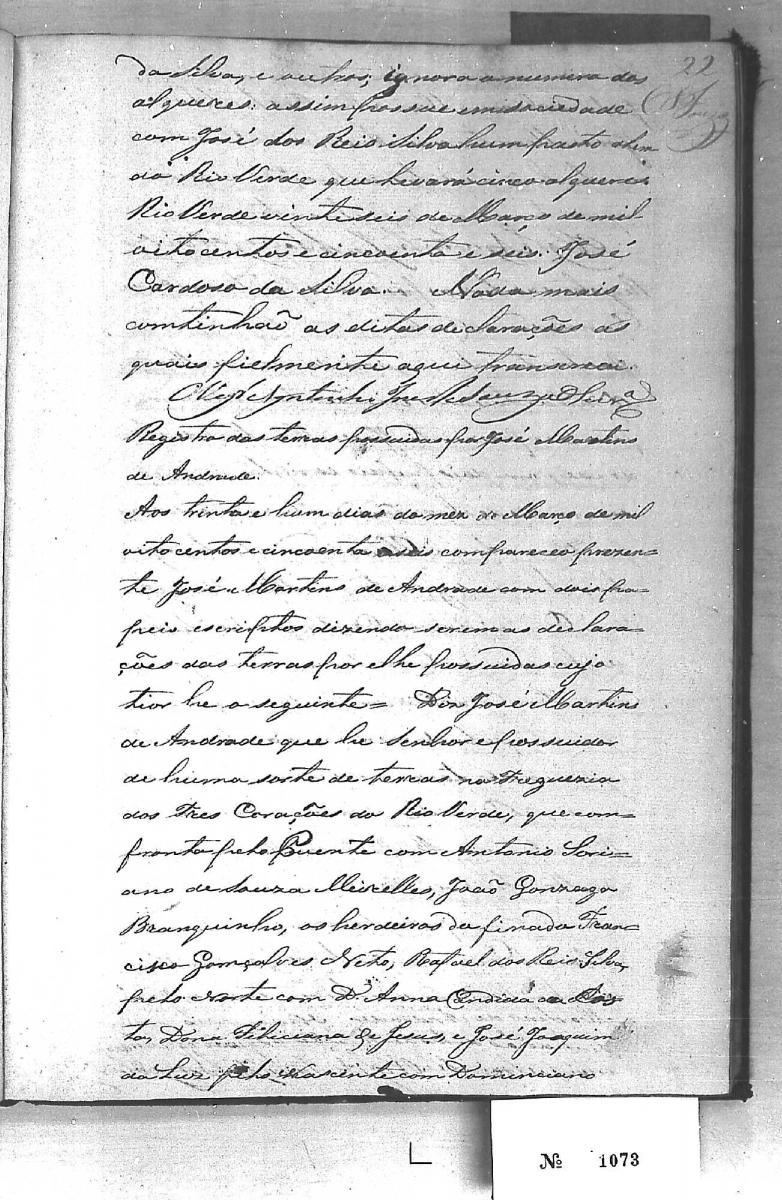 22
da Silva, e outros, ignora o numero dos
alqueres: assim possue em sociedade
com José dos Reis Silva hum pasto alem
do Rio Verde que levará cisco alqueres
Rio Verde vinte seis de Março de mil
oitocentos e cincoenta e seis. José
Cardoso da Silva. Nada mais
comtinhaõ as ditas declarações as
quais fielmente aqui transcrevi.
O Vig.
Registro das terras possuidas por José Martins
de Andrade.
Aos trinta e hum dias do mez de Março de mil
oitocentos e cincoenta e seis compareceo prezen-
te José Martins de Andrade com dois pa-
peis escriptos dizendo serem as declara-
ções das terras por elle possuidas cujo
tior he o seguinte = Diz José Martins
de Andrade que he senhor e possuidor
de huma sorte de terras na Freguezia
dos Tres Corações do Rio Verde, que com-
fronta pelo Puente com Antonio Sori-
ano de Souza Meirelles, Joaõ Gonzaga
Branquinho, os herdeiros do finado Fran-
cisco Gonçalves Neto, Rafael dos Reis Silva,
pelo Norte com D. Anna Candida da Cos-
ta, Dona Filiciana de Jesus, e José Joaquim
da Luz pelo Nascente com Dominciano
Nº 1073